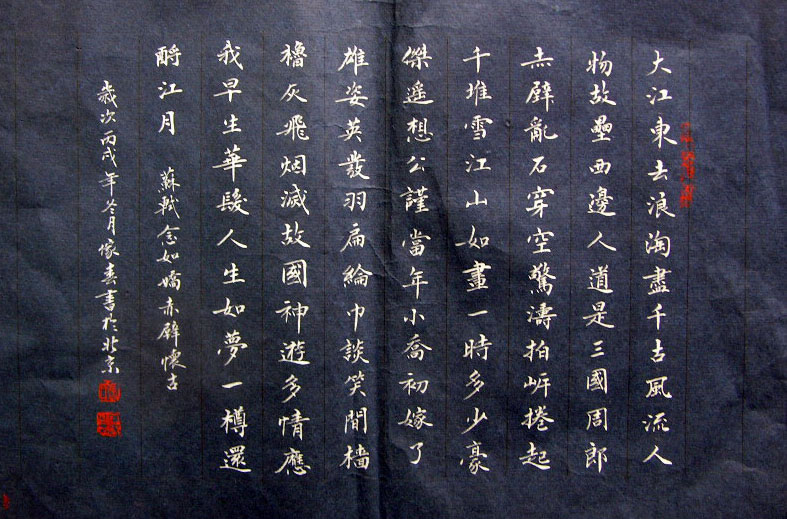 大江東去浪淘盡千古風流人
物故壘西邊人道是三國周郎
赤壁亂石穿空驚濤拍岸捲起
千堆雪江山如畫一時多少豪
傑遥想公謹當年小喬初嫁了
雄姿英發羽扇綸巾談笑間檣
櫓灰飛烟滅故國神遊多情應
我早生華髮人生如夢一樽還
酹江月 蘇軾念奴嬌赤壁懷古
歲次丙戌年冬月家春書於北京